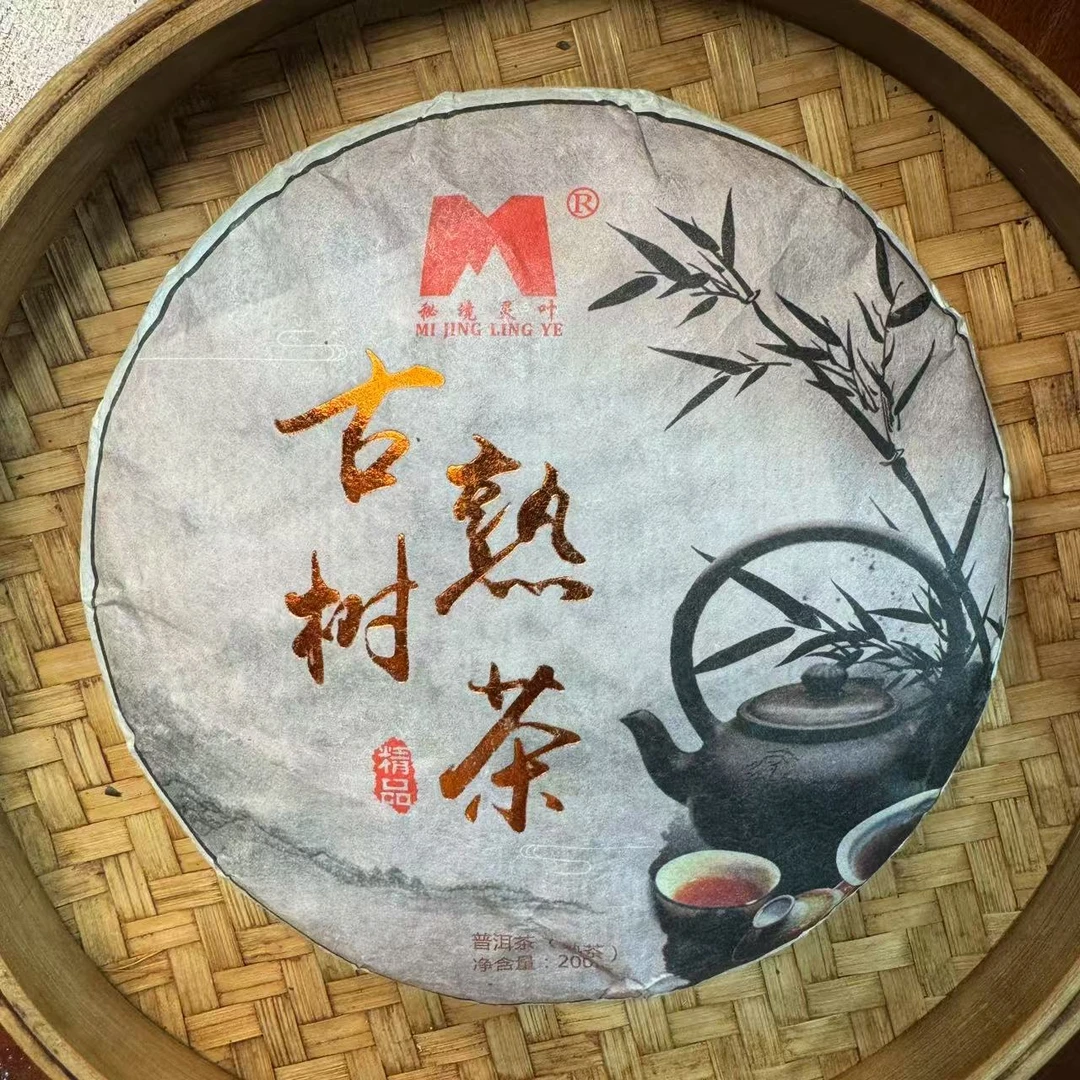 ®
秘境灵叶
MI JING LING YE
古树
熟茶
精品
普洱茶（熟茶）
净含量：200